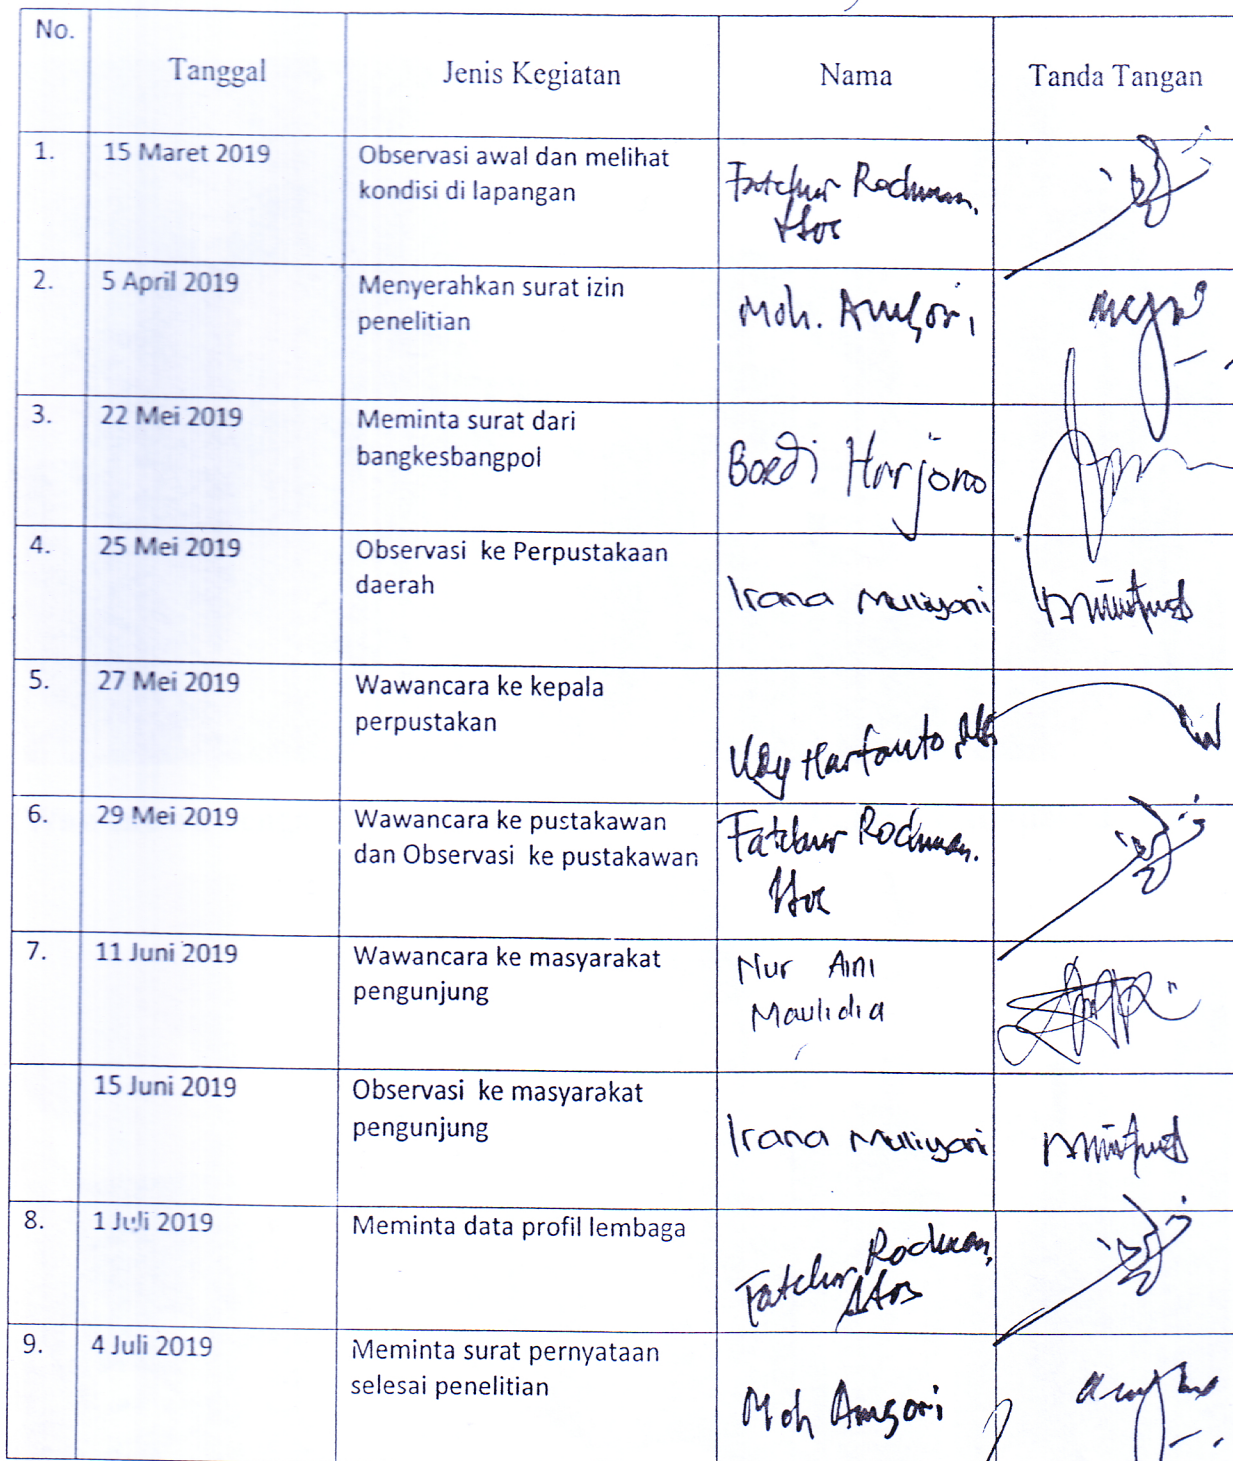 No. Tanggal Jenis Kegiatan Nama Tanda Tangan
1. 15 Maret 2019 Observasi awal dan melihat
kondisi di lapangan
Fatchur Rochman,
2. 5 April 2019 Menyerahkan surat izin
penelitian
Moh. Amsori
3. 22 Mei 2019 Meminta surat dari
bangkesbangpol
Boedi Harjono
4. 25 Mei 2019 Observasi ke Perpustakaan
daerah
Irana Muliyani
5. 27 Mei 2019 Wawancara ke kepala
perpustakan
Hartanto
6. 29 Mei 2019 Wawancara ke pustakawan
dan Observasi ke pustakawan
Fatchur Rochman,
7. 11 Juni 2019 Wawancara ke masyarakat
pengunjung
Nur Aini
Maulidia
15 Juni 2019 Observasi ke masyarakat
pengunjung
Irana Muliyani
8. 1 Juli 2019 Meminta data profil lembaga
Fatchur Rochman,
9. 4 Juli 2019 Meminta surat pernyataan
selesai penelitian
Moh Amsori